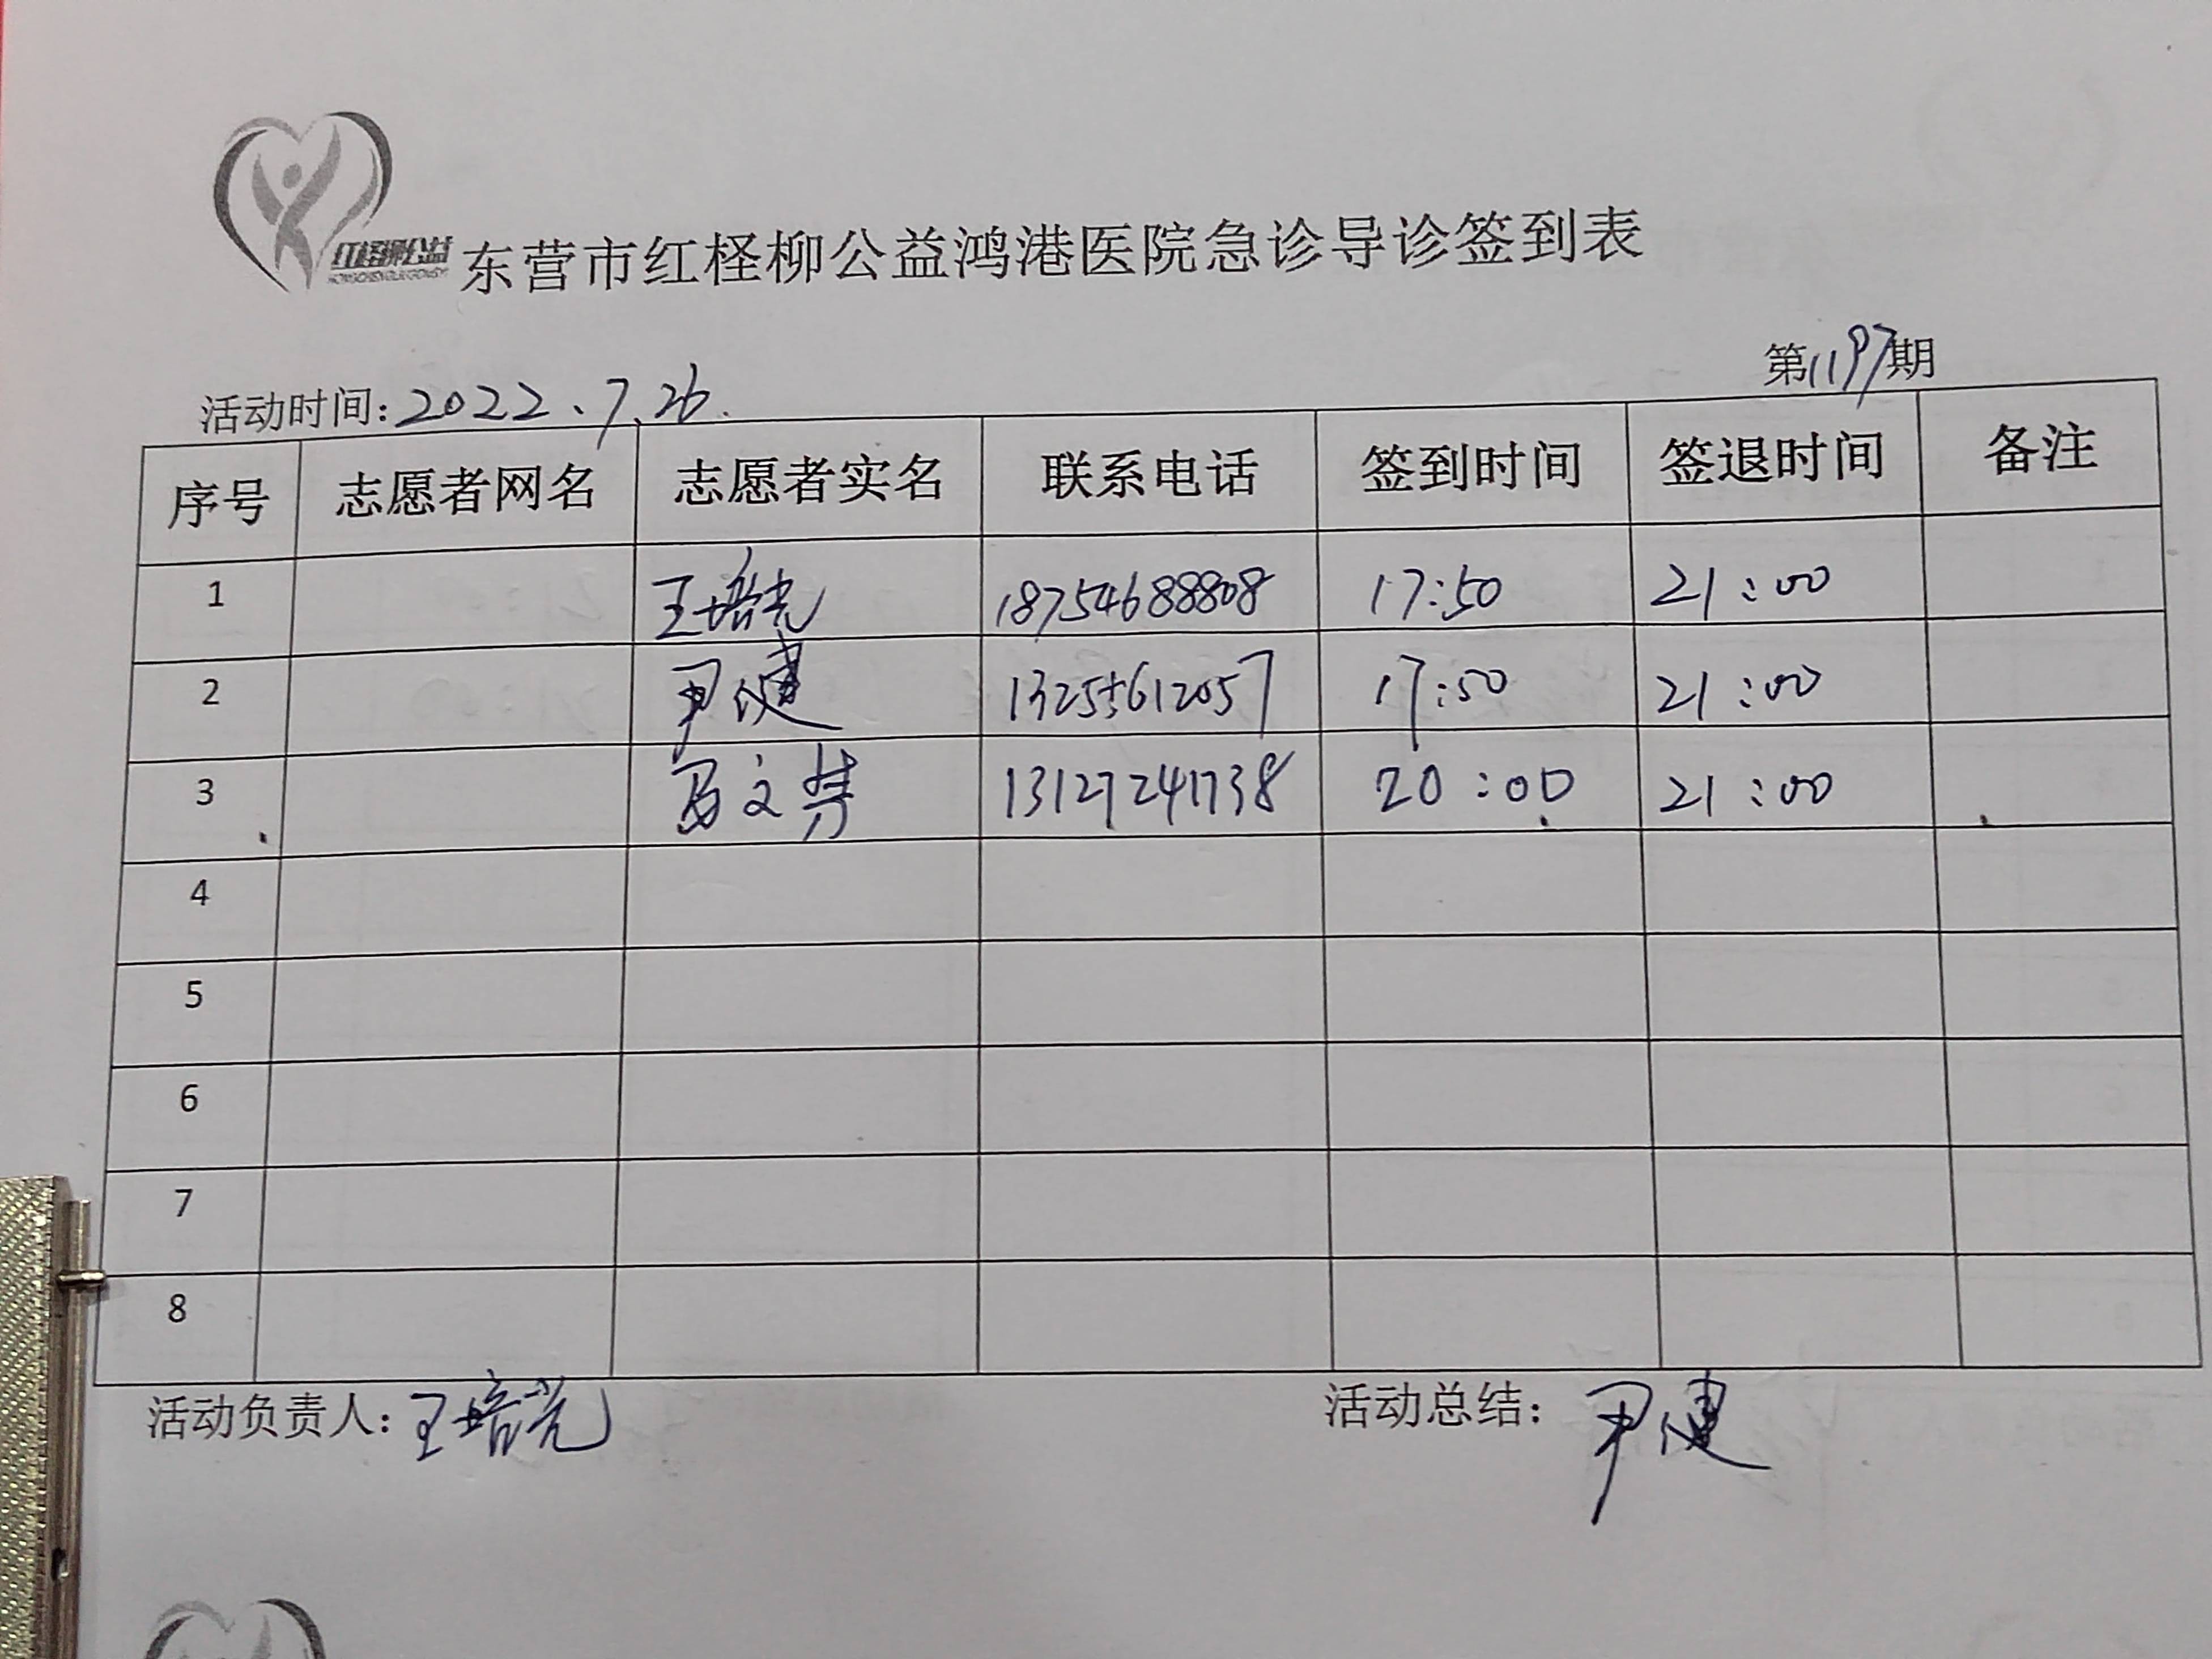 红柽柳公益
东营市红柽柳公益鸿港医院急诊导诊签到表
第1197期
活动时间:2022、7.26.
序号 志愿者网名 志愿者实名 联系电话 签到时间 签退时间 备注
1 王培光 18754688808 17:50 21:00
2 尹健 13255612057 17:50 21:00
3 文 13127241738 20:00 21:00
4
5
6
7
8
活动负责人:王培光 活动总结:尹健